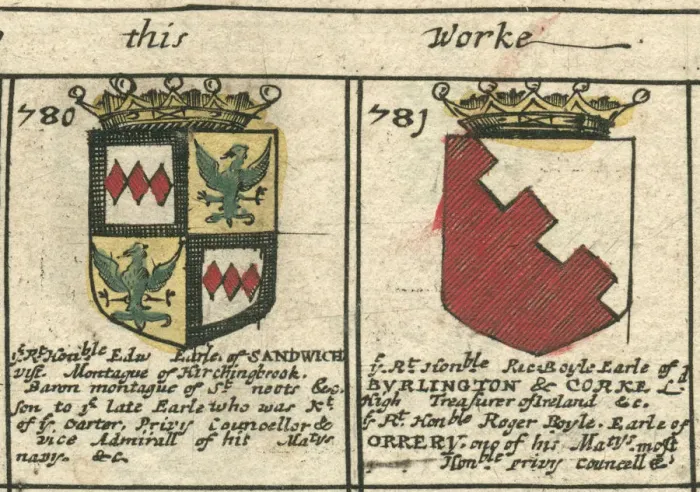 this Worke
780
yᵉ Rᵗ Honᵇˡᵉ Edw Earle of SANDWICH
visᵗ Montague of Hirchingbrook.
Baron montague of Sᵗ neots &c.
son to yᵉ late Earle who was Kᵗ
of yᵉ Garter, Privy Councellor &
Vice Admirall of his Matʸˢ
navy. &c.
781
yᵉ Rᵗ Honᵇˡᵉ Ric. Boyle Earle of
BVRLINGTON & CORKE Lᵈ
High Treasurer of Ireland &c.
yᵉ Rᵗ Honᵇˡᵉ Roger Boyle. Earle of
ORRERY. one of his Matʸˢ most
Honᵇˡᵉ privy councell &